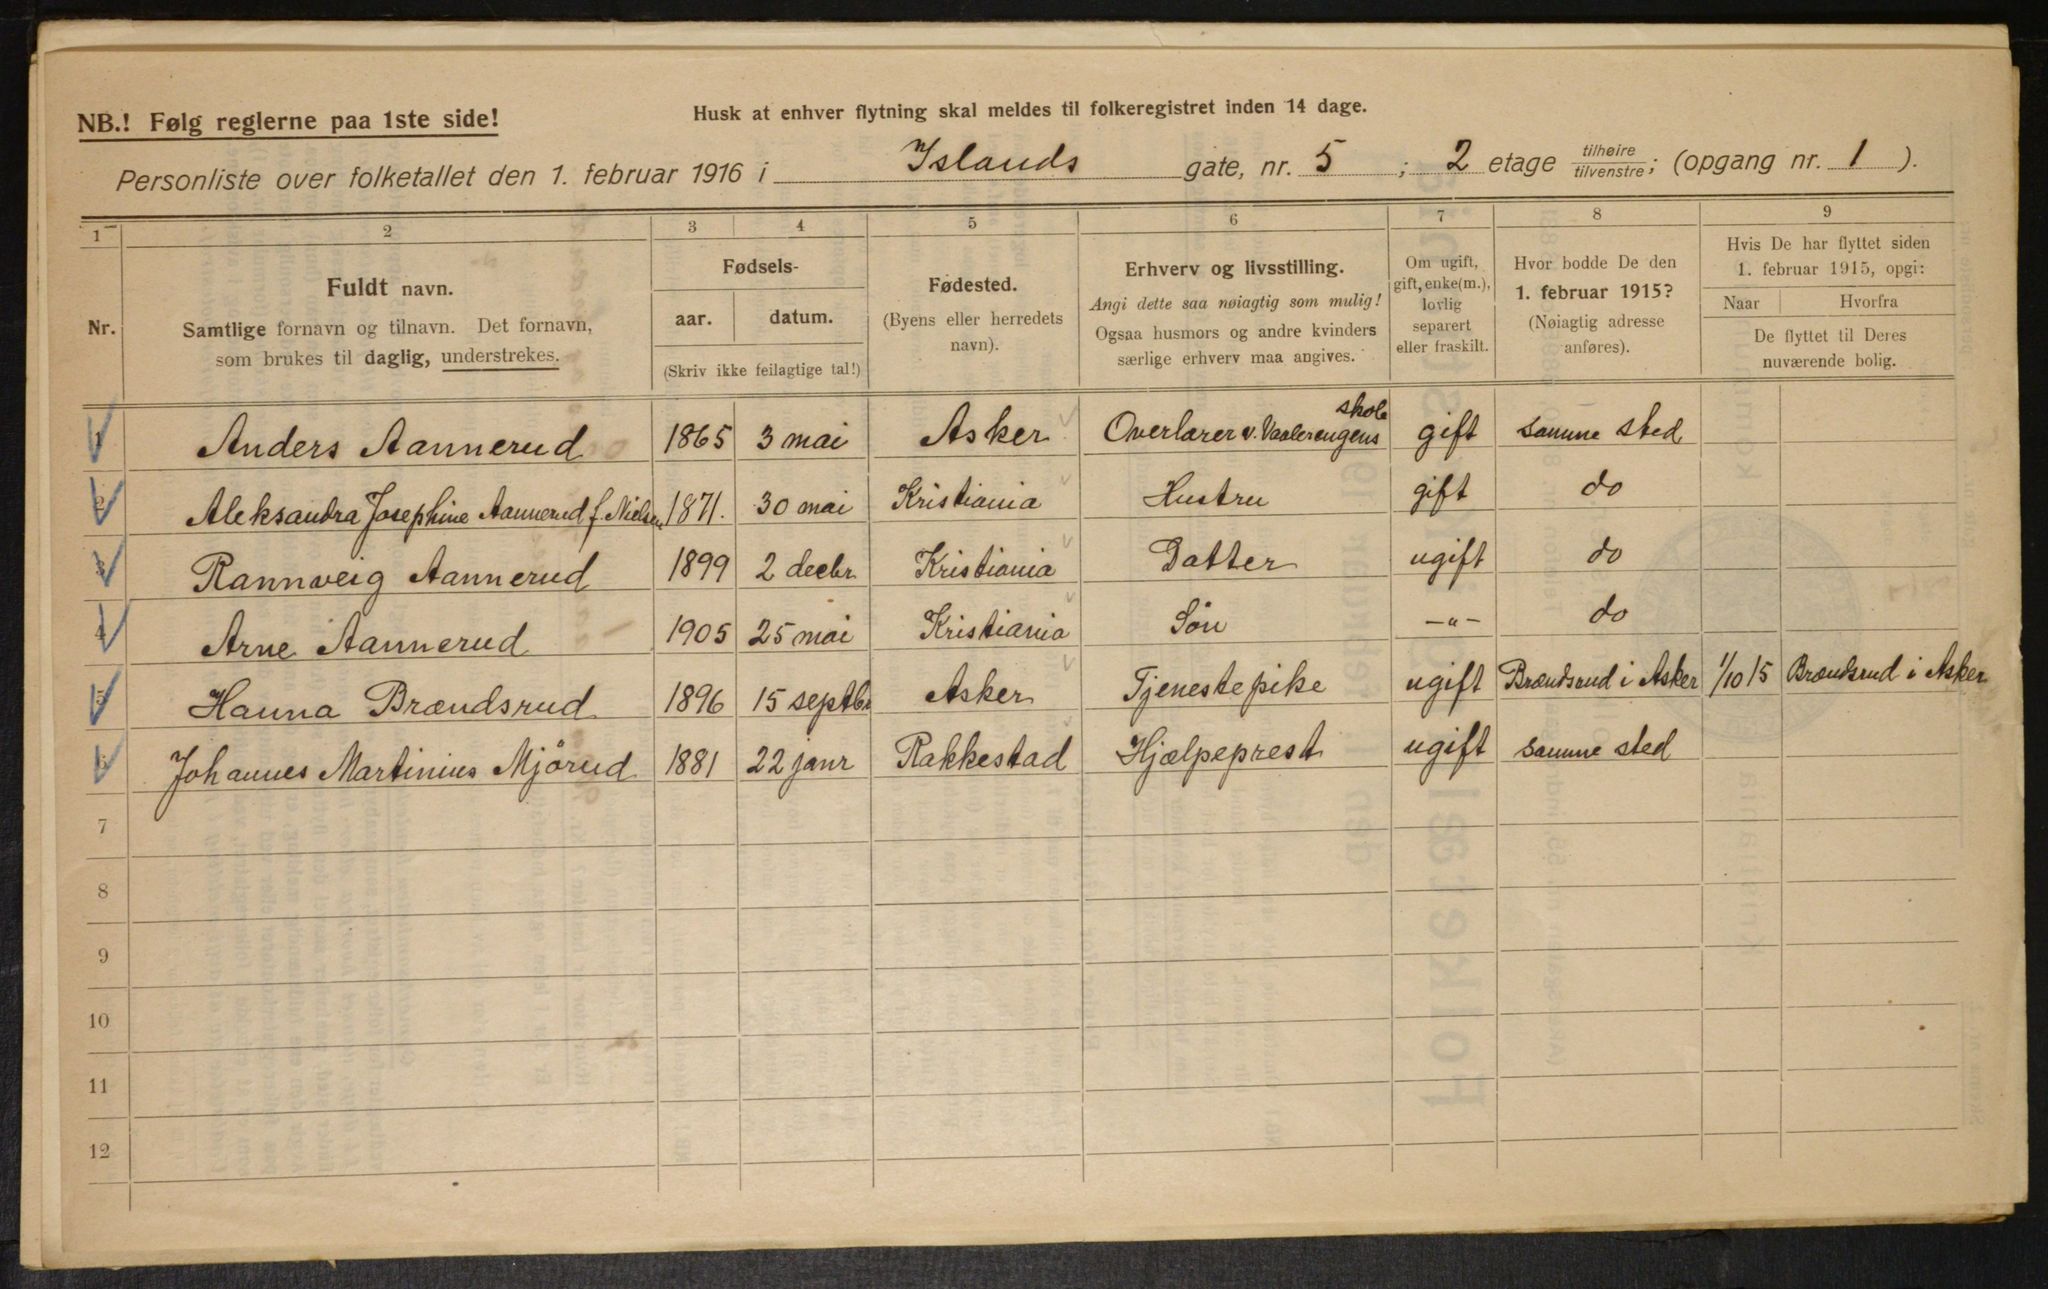 NB.! Følg reglerne paa 1ste side!
Husk at enhver flytning skal meldes til folkeregistret inden 14 dage.
Personliste over folketallet den 1. februar 1916 i Islands gate, nr. 5 ; 2 etage tilhøire/tilvenstre; (opgang nr. 1 ).
1 2 3 4 5 6 7 8 9
Nr.
Fuldt navn.
Samtlige fornavn og tilnavn. Det fornavn,
som brukes til daglig, understrekes.
Fødsels-
aar. datum.
(Skriv ikke feilagtige tal!)
Fødested.
(Byens eller herredets
navn).
Erhverv og livsstilling.
Angi dette saa nøiagtig som mulig!
Ogsaa husmors og andre kvinders
særlige erhverv maa angives.
Om ugift,
gift, enke(m.),
lovlig
separert
eller fraskilt.
Hvor bodde De den
1. februar 1915?
(Nøiagtig adresse
anføres).
Hvis De har flyttet siden
1. februar 1915, opgi:
Naar Hvorfra
De flyttet til Deres
nuværende bolig.
1 Anders Aannerud 1865 3 mai Asker Overlærer v. Vaalerengens skole gift samme sted
2 Aleksandra Josephine Aannerud f. Nielsen 1871. 30 mai Kristiania Hustru gift do
3 Rannveig Aannerud 1899 2 decbr Kristiania Datter ugift do
4 Arne Aannerud 1905 25 mai Kristiania Søn —"— do
5 Hanna Brændsrud 1896 15 septbr Asker Tjenestepike ugift Brændsrud i Asker 1/10 15 Brændsrud i Asker
6 Johannes Martinius Mjörud 1881 22 janr Rakkestad Hjælpeprest ugift samme sted
7
8
9
10
11
12